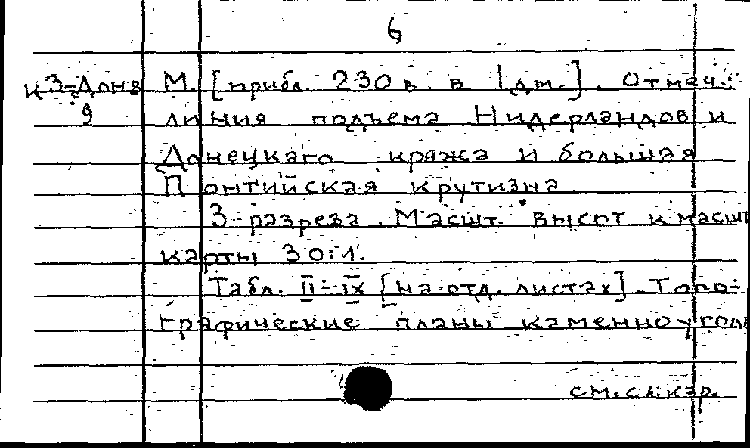 6
к З-Дона М. [прибл. 230 в. в 1 дм.]. Отмеч.:
9 линия подъема Нидерландов и
Донецкаго кряжа и большая
Понтийская крутизна
3 разреза. Масшт. высот к масшт
карты 30:1.
Табл. II-IX [на отд. листах]. Топо-
графические планы каменноуголь
см. сл. кар.